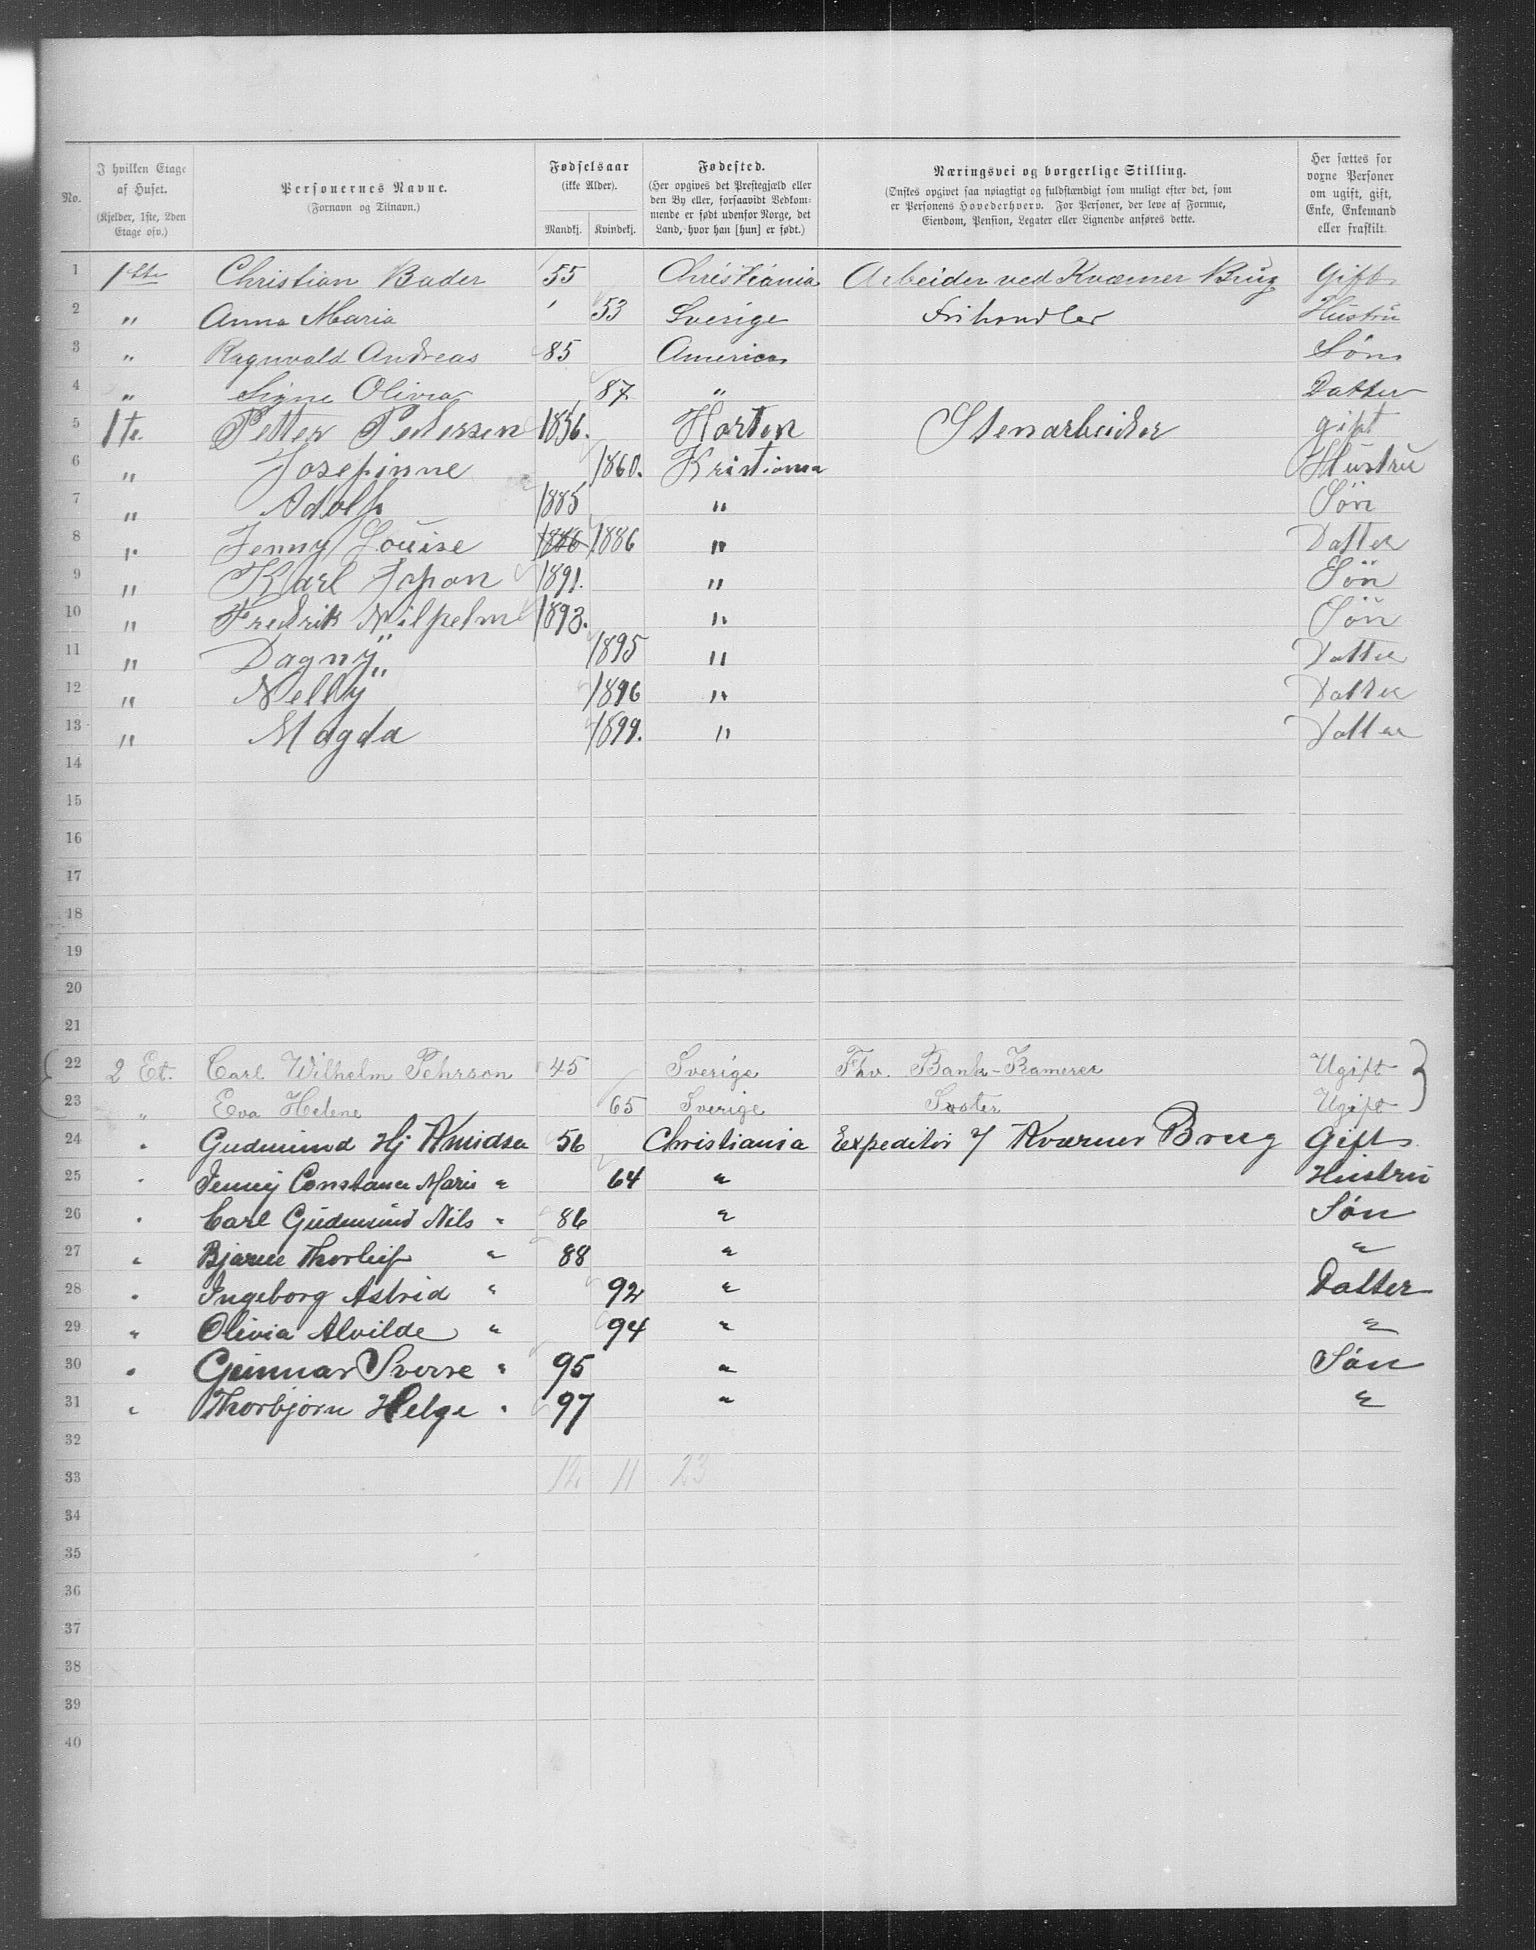 No. | I hvilken Etage af Huset. (Kjelder, 1ste, 2den Etage osv.) | Personernes Navne. (Fornavn og Tilnavn.) | Fødselsaar (ikke Alder). Mandkj. | Kvindekj. | Fødested. (Her opgives det Præstegjæld eller den By eller, forsaavidt Vedkommende er født udenfor Norge, det Land, hvor han [hun] er født.) | Næringsvei og borgerlige Stilling. (Ønskes opgivet saa nøiagtigt og fuldstændigt som muligt efter det, som er Personens Hovederhverv. For Personer, der leve af Formue, Eiendom, Pension, Legater eller Lignende anføres dette. | Her sættes for voxne Personer om ugift, gift, Enke, Enkemand eller fraskilt.
1 1ste Christian Bader 55 Christiania Arbeider ved Kværner Brug Gift
2 " Anna Maria 53 Sverige Frihandler Hustru
3 " Ragnvald Andreas 85 America Søn
4 " Signe Olivia 87 " Datter
5 1te. Petter Pedersen 1856. Horten Stenarbeider gift
6 " Josepinne 1860. Kristiania Hustru
7 " Adolf 1885 " Søn
8 " Jenny Louise 1886 1886 " Datter
9 " Karl Johan 1891. " Søn
10 " Fredrik Wilhelm 1893. " Søn
11 " Dagny " 1895 " Datter
12 " Nelly " 1896 " Datter
13 " Magda 1899. " Datter
14
15
16
17
18
19
20
21
22 2 Et. Carl Wilhelm Pehrson 45 Sverige Fhv. Bank-Kamerer Ugift
23 " Eva Helene 65 Sverige Søster Ugift
24 " Gudmund Hj Knudsen 56 Christiania Expeditør v/ Kværner Brug Gift
25 " Jenny Constance Marie " 64 " Hustru
26 " Carl Gudmund Nils " 86 " Søn
27 " Bjarne Thorleif " 88 " "
28 " Ingeborg Astrid " 92 " Datter
29 " Olivia Alvilde " 94 " "
30 " Gunnar Sverre " 95 " Søn
31 " Thorbjørn Helge " 97 " "
32
33 12 11 23
34
35
36
37
38
39
40